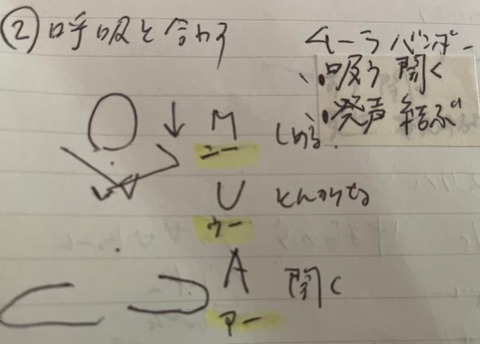 ② 呼吸と合わす
ムーラバンダー
・吸う 開く
・発声 結ぶ
M しめる.
ニー
U とんがらせる
ウー
A 開く
アー